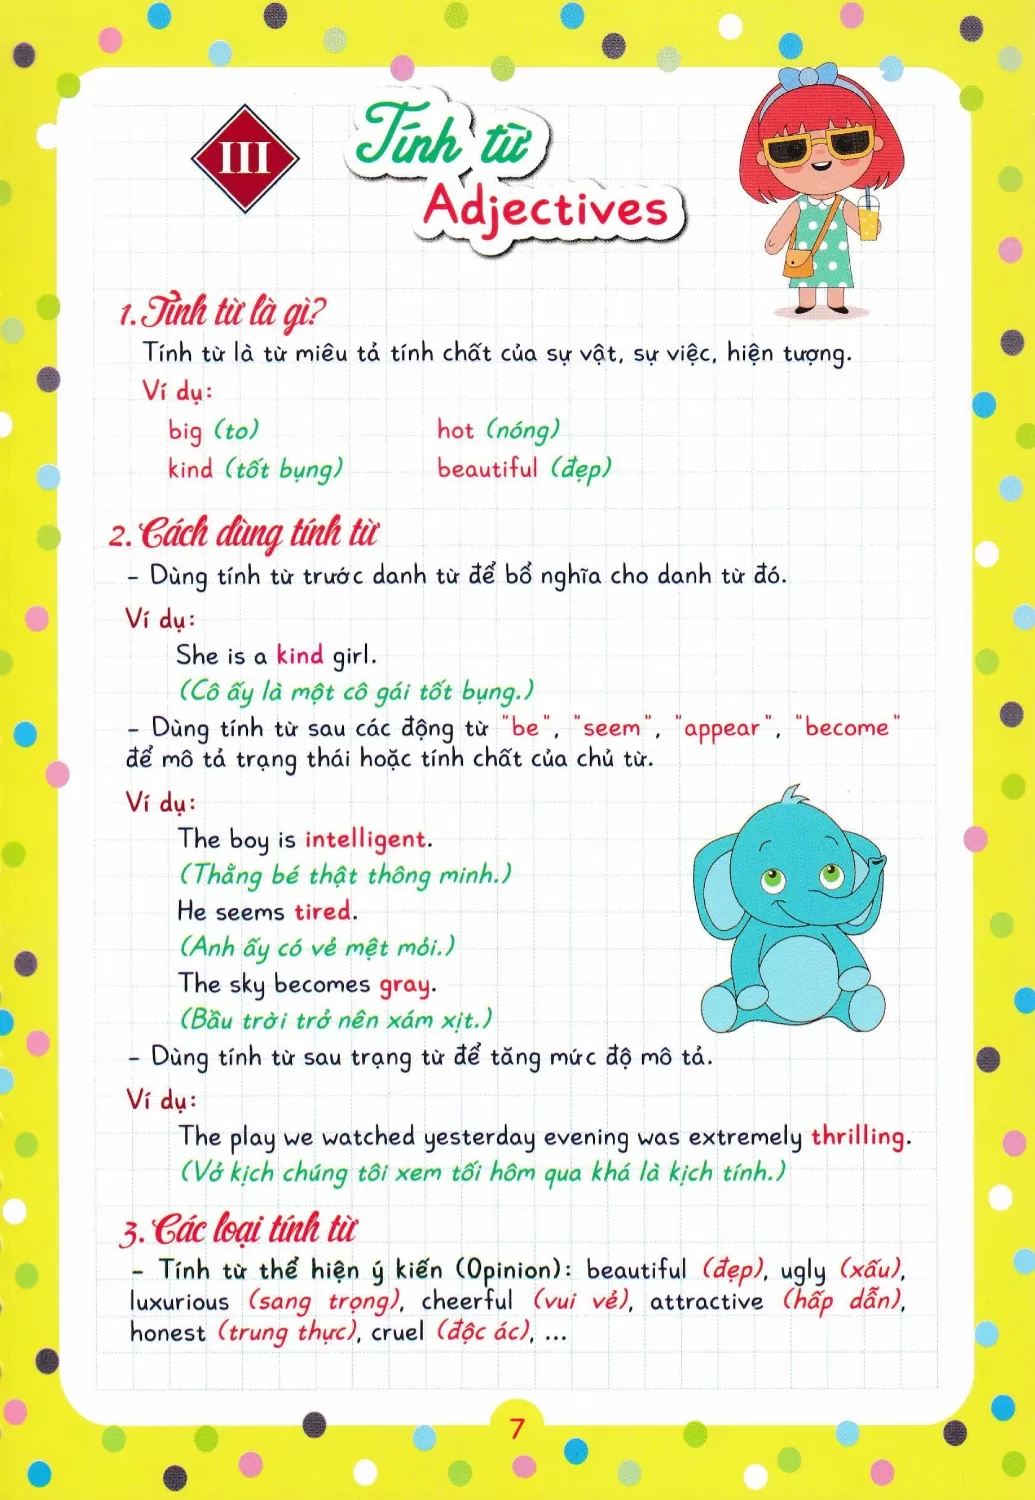 III
Tính từ
Adjectives
1. Tính từ là gì?
Tính từ là từ miêu tả tính chất của sự vật, sự việc, hiện tượng.
Ví dụ:
big (to) hot (nóng)
kind (tốt bụng) beautiful (đẹp)
2. Cách dùng tính từ
– Dùng tính từ trước danh từ để bổ nghĩa cho danh từ đó.
Ví dụ:
She is a kind girl.
(Cô ấy là một cô gái tốt bụng.)
– Dùng tính từ sau các động từ "be", "seem", "appear", "become"
để mô tả trạng thái hoặc tính chất của chủ từ.
Ví dụ:
The boy is intelligent.
(Thằng bé thật thông minh.)
He seems tired.
(Anh ấy có vẻ mệt mỏi.)
The sky becomes gray.
(Bầu trời trở nên xám xịt.)
– Dùng tính từ sau trạng từ để tăng mức độ mô tả.
Ví dụ:
The play we watched yesterday evening was extremely thrilling.
(Vở kịch chúng tôi xem tối hôm qua khá là kịch tính.)
3. Các loại tính từ
– Tính từ thể hiện ý kiến (Opinion): beautiful (đẹp), ugly (xấu),
luxurious (sang trọng), cheerful (vui vẻ), attractive (hấp dẫn),
honest (trung thực), cruel (độc ác), ...
7